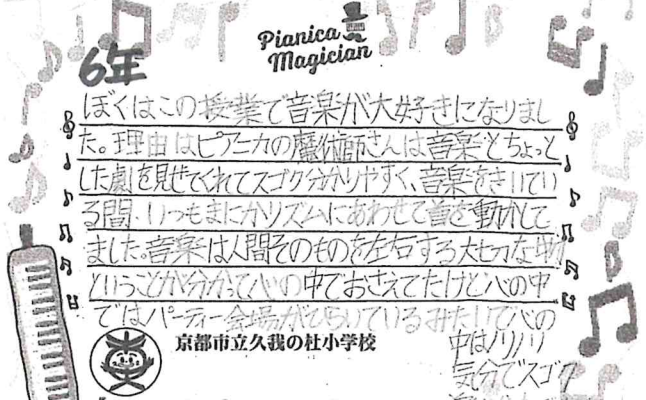 Pianica
Magician
6年
ぼくはこの授業で音楽が大好きになりまし
た。理由はピアニカの魔術師さんは音楽とちょっと
した劇を見せてくれてスゴク分かりやすく、音楽をきいてい
る間、いつもまにかリズムにあわせて首を動かして
ました。音楽は人間そのものを左右する大切な物
ということが分かって心の中でおさえてたけど心の中
ではパーティー会場がひらいているみたいで心の
京都市立久我の杜小学校
中はノリノリ
気分でスゴク